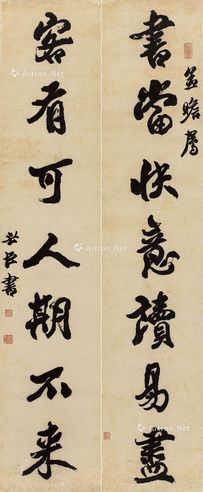 孟瞻属
書當快意讀易盡
客有可人期不来
世臣書
Artron.Net
Artron.Net